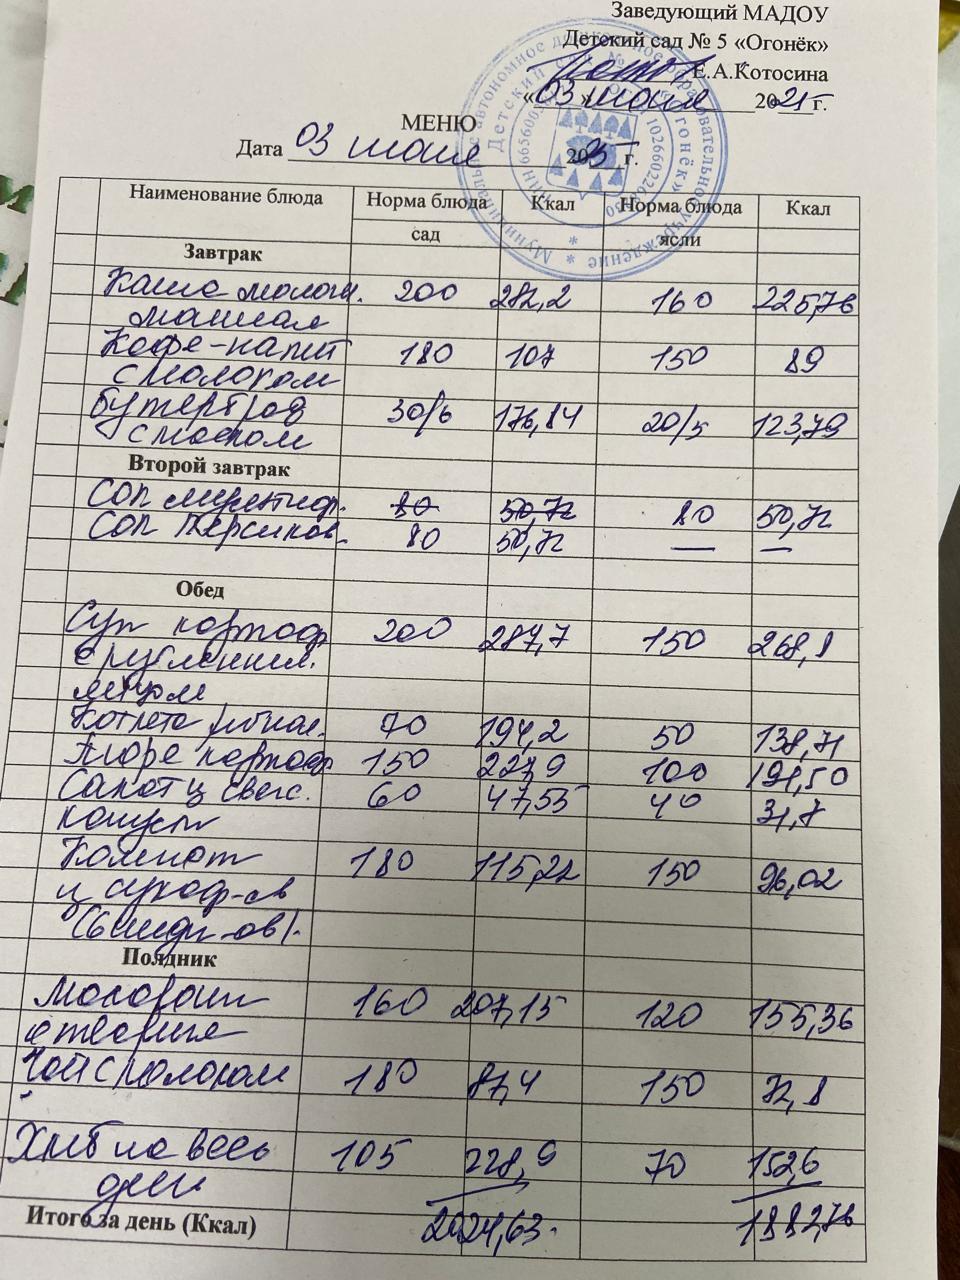 Заведующий МАДОУ
Детский сад № 5 «Огонёк»
Е.А.Котосина
«03» июня 2021 г.
МЕНЮ
Дата 03 июня 20 г.
Наименование блюда Норма блюда Ккал Норма блюда Ккал
сад ясли
Завтрак
Каша молочн. 200 282,2 160 225,76
манная
Кофе-напит 180 107 150 89
с молоком
Бутерброд 30/6 176,84 20/5 123,79
с маслом
Второй завтрак
Сок 80 50,72 80 50,72
Сок персиков. 80 50,72 — —
Обед
Суп картоф 200 287,7 150 268,8
с рубленым.
яйцом
Котлета рыбная. 70 194,2 50 138,71
Пюре картоф 150 227,9 100 191,50
Салат из свеж. 60 47,55 40 31,7
капуст
Компот 180 115,22 150 96,02
из сухоф-в
Полдник
Макароны 160 207,15 120 155,36
отварные
Чай с молоком 180 87,4 150 72,8
Хлеб на весь 105 228,9 70 152,6
день
Итого за день (Ккал) 2024,63 1882,76